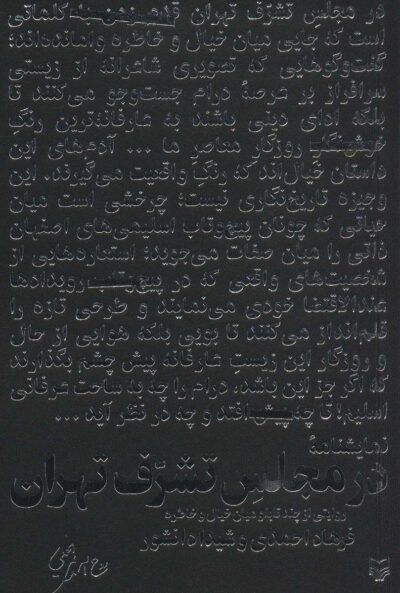 در مجلس تشرّف تهران قدم‌زدن میان کلماتی
است که جایی میان خیال و خاطره وامانده‌اند؛
گفت‌وگوهایی که تصویری شاعرانه از زیستی
سرافراز بر عرصهٔ درام جست‌وجو می‌کنند تا
بلکه ادای دینی باشند به عارفانه‌ترین رنگِ
روزگار معاصر ما ... آدم‌های این
داستان خیال‌اند که رنگ واقعیت می‌گیرند. این
وجیزه تاریخ‌نگاری نیست؛ چرخشی است میان
حیاتی که چونان پیچ‌وتاب اسلیمی‌های اصفهان
ذاتی را میان صفات می‌جوید؛ استعاره‌هایی از
شخصیت‌های واقعی که در پیچ‌وتاب رویدادها
عندالاقتضا خودی می‌نمایند و طرحی تازه را
قلم‌انداز می‌کنند تا بویی بلکه هوایی از حال
و روزگار این زیست عارفانه پیش چشم بگذارند
که اگر جز این باشد، درام را چه به ساحت عرفانی
اسلیم! تا چه پیش افتد و چه در نظر آید ...
نمایشنامهٔ
در مجلس تشرّف تهران
روایتی از چند تابلو میان خیال و خاطره
فرهاد احمدی و شیدا دانشور